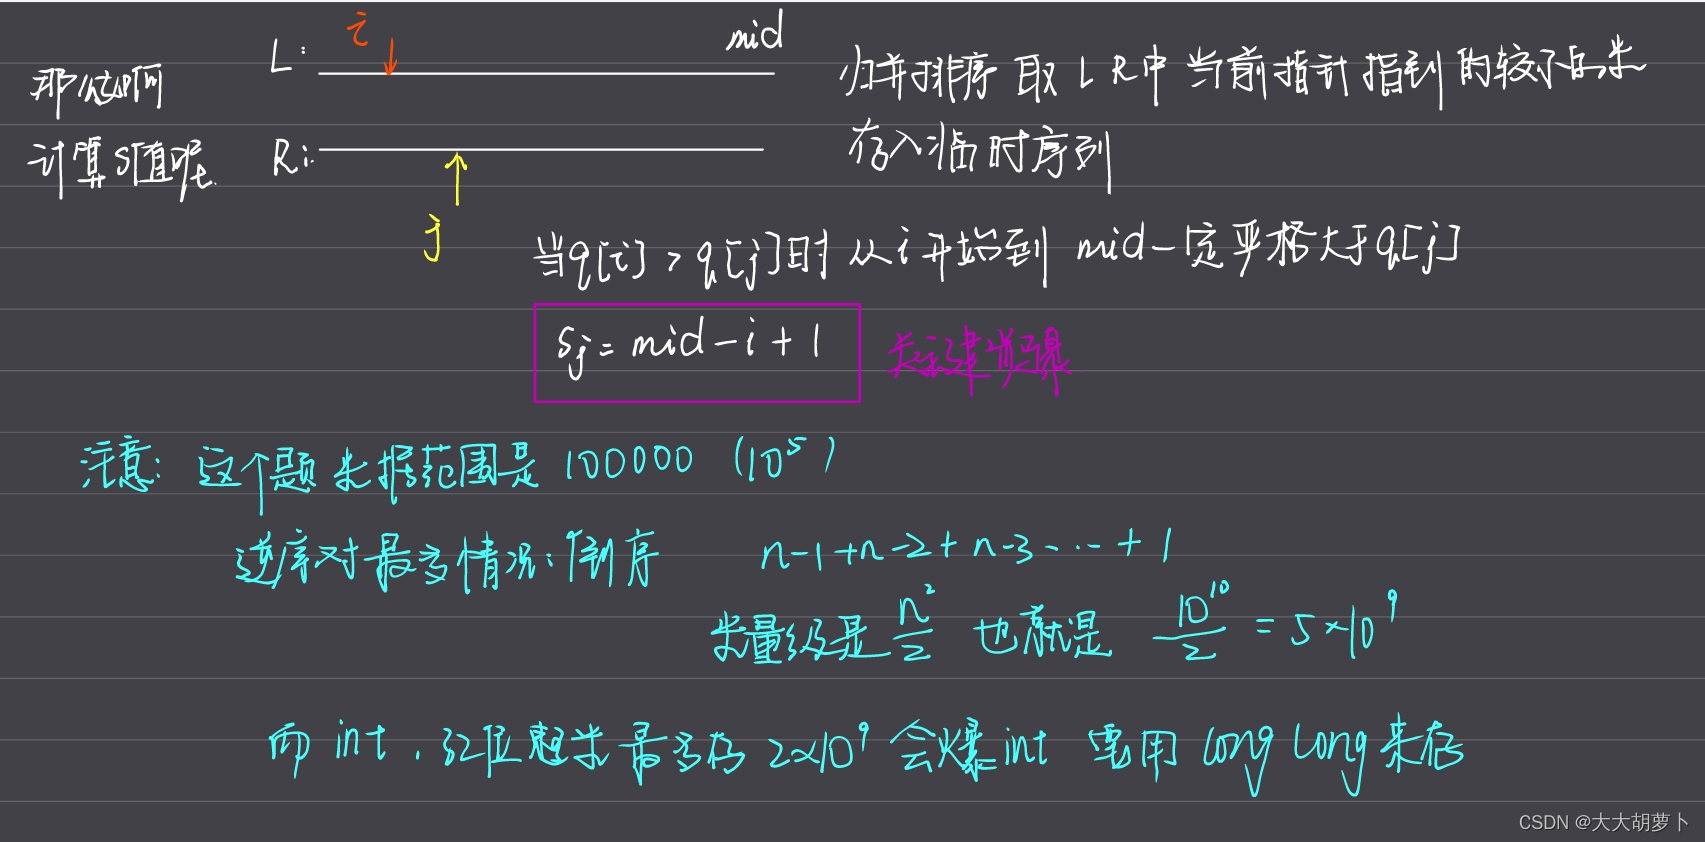 那么如何
计算S值呢
L:
i
mid
R:
j
归并排序 取 L R中 当前指针指到的较小的数
存入临时序列
当q[i] > q[j]时 从i开始到 mid一定严格大于q[j]
Sj = mid - i + 1
关键步骤
注意: 这个题数据范围是 100000 (10^5)
逆序对最多情况: 倒序 n-1+n-2+n-3-...+1
数量级是 n^2/2 也就是 10^10/2 = 5×10^9
而 int, 32位整数最多存 2×10^9 会爆int 要用 long long 来存
CSDN @大大胡萝卜